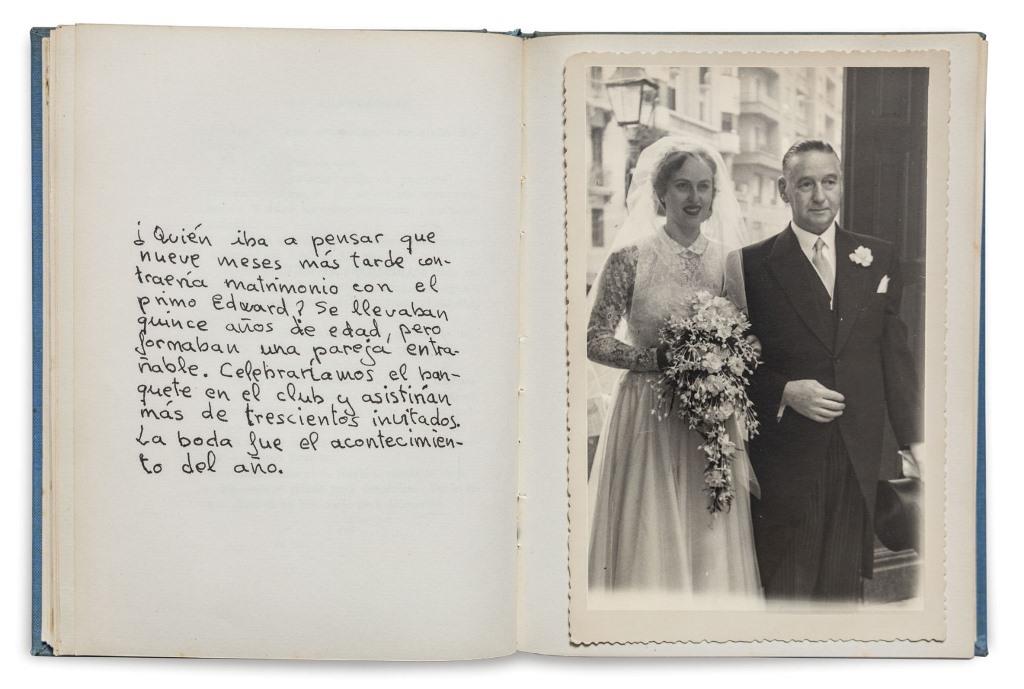 ¿Quién iba a pensar que
nueve meses más tarde con-
traería matrimonio con el
primo Edward? Se llevaban
quince años de edad, pero
formaban una pareja entra-
ñable. Celebraríamos el ban-
quete en el club y asistirían
más de trescientos invitados.
La boda fue el acontecimien-
to del año.